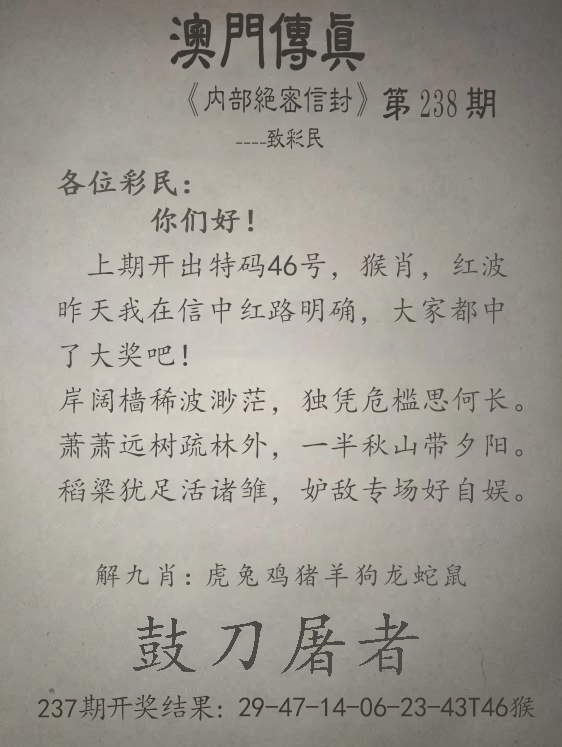 澳門傳真
《内部絕密信封》第238期
----致彩民
各位彩民：
你们好！
上期开出特码46号，猴肖，红波
昨天我在信中红路明确，大家都中
了大奖吧！
岸阔樯稀波渺茫，独凭危槛思何长。
萧萧远树疏林外，一半秋山带夕阳。
稻粱犹足活诸雏，妒敌专场好自娱。
解九肖：虎兔鸡猪羊狗龙蛇鼠
鼓刀屠者
237期开奖结果：29-47-14-06-23-43T46猴